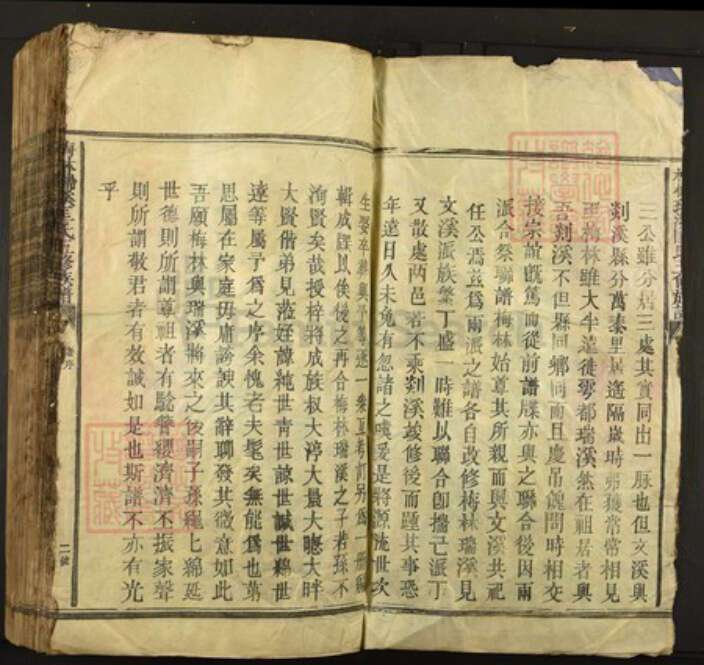 三公雖分居三處其實同出一脉也但文溪與
剡溪縣分萬泰里居遙隔歲時弗獲常常相見
至梅林雖大半遠徙雩都瑞溪然在祖居者與
吾剡溪不但縣同鄉同而且慶弔餽問時相交
接宗誼既篤而從前譜牒亦與之聯合後因兩
派合祭聯譜梅林始尊其所親而與文溪共祀
任公焉茲爲兩派之譜各自改修梅林瑞溪見
文溪派族繁丁盛一時難以聯合卽攜己派丁
又散處两邑若不乘剡溪竣修後而踵其事恐
年遠日久未免有忽諸之嘆爰是將源流世次
生娶卒葬與予等逐一梁夏考訂另爲一冊
輯成譜以俟後之再合梅林瑞溪之子若孫不
洵賢矣哉授梓將成族叔大渟大景大聰大畔
大賢偕弟見蒞好諱純世青世諒世誠世錦世
達等屬予爲之序余愧老夫髦矣無能爲也第
思屬在家庭毋庸諭諛其辭聊發其微意如此
吾願梅林與瑞溪將來之後嗣子孫繩上綿延
世德則所謂尊祖者有騐瞽纓濟濟不振家聲
則所謂敬君者有效誠如是也斯譜不亦有光
乎
二號